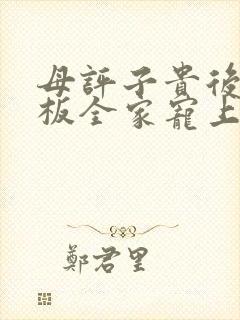 母評子貴後
板全家寵上
鄭君里